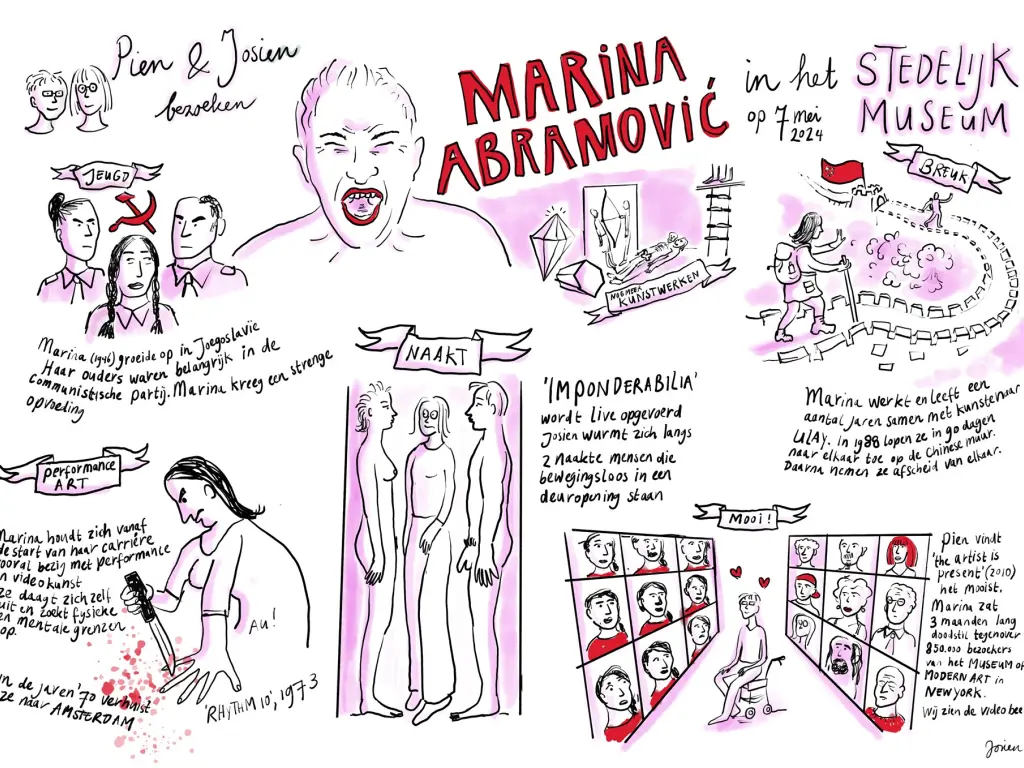 Pien & Josien
bezoeken
MARINA
ABRAMOVIĆ
in het
op 7 mei
2024
STEDELIJK
MUSEUM
JEUGD
Marina (1946) groeide op in Joegoslavie
Haar ouders waren belangrijk in de
Communistische partij. Marina kreeg een strenge
opvoeding
NOG MEER
KUNSTWERKEN
BREUK
Marina werkt en leeft een
aantal jaren samen met kunstenaar
ULAY. In 1988 lopen ze in 90 dagen
naar elkaar toe op de Chinese muur.
Daarna nemen ze afscheid van elkaar.
NAAKT
'IMPONDERABILIA'
wordt live opgevoerd
Josien wurmt zich langs
2 naakte mensen die
bewegingsloos in een
deuropening staan
performance
ART
Marina houdt zich vanaf
de start van haar carrière
vooral bezig met performance
en videokunst
ze daagt zichzelf
uit en zoekt fysieke
en mentale grenzen
op.
AU!
In de jaren '70 verhuist
ze naar AMSTERDAM
'RHYTHM 10', 1973
MOOI!
Pien vindt
'the artist is
present' (2010)
het mooist.
Marina zat
3 maanden lang
doodstil tegenover
850.000 bezoekers
van het MUSEUM OF
MODERN ART in
NEW YORK.
Wij zien de video
Josien